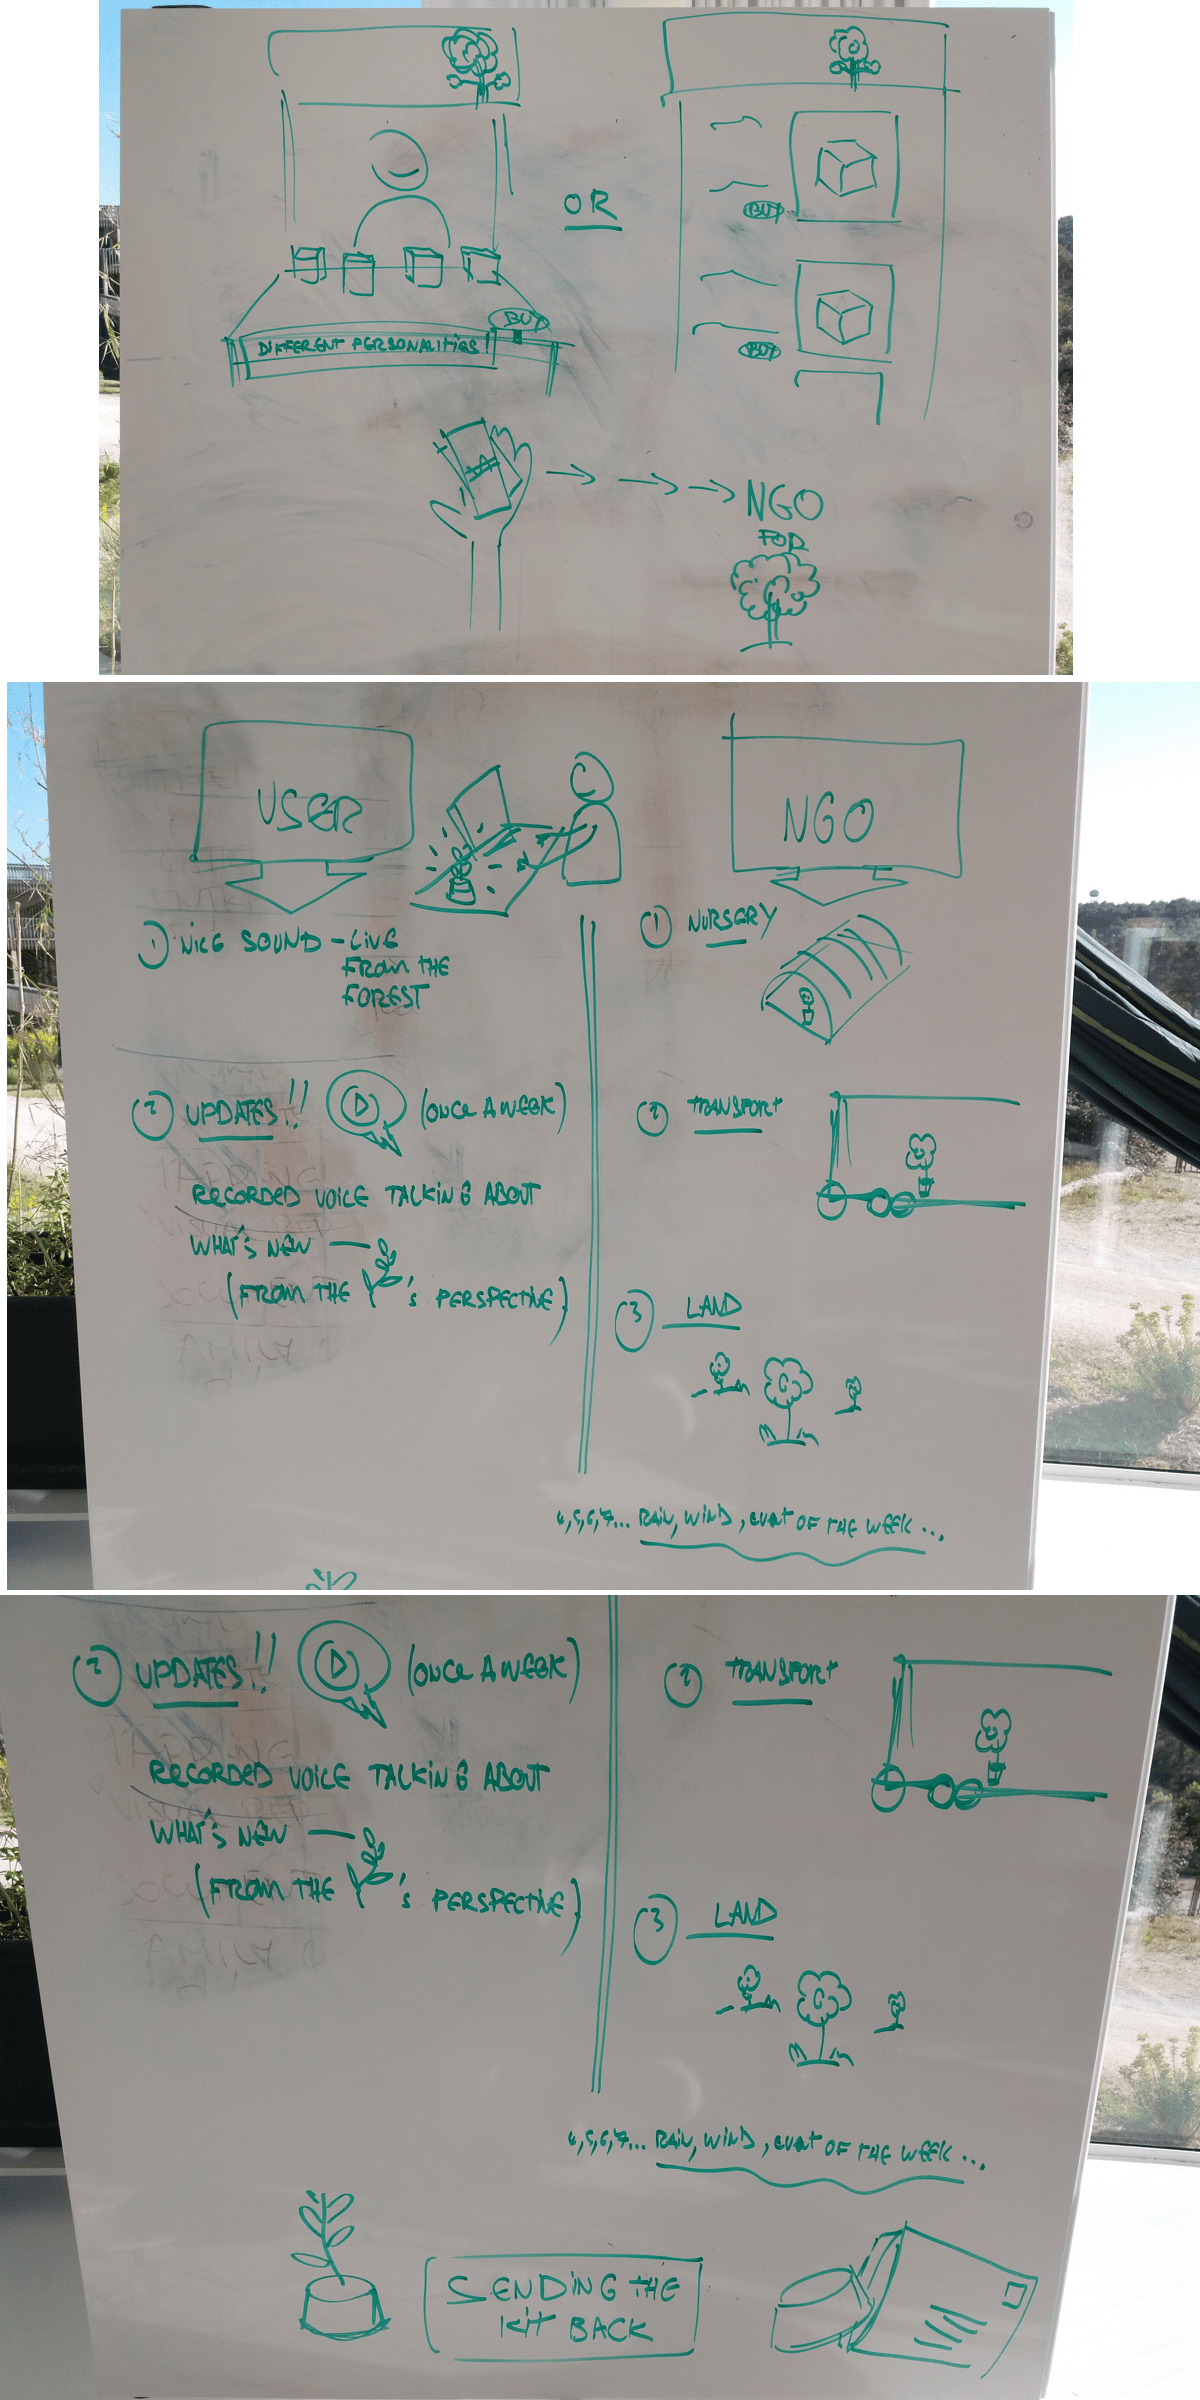 OR
BUY
DIFFERENT PERSONALITIES!
BUY
BUY
NGO
FOR
USER
NGO
1 NICE SOUND - LIVE
FROM THE
FOREST
1 NURSERY
2 UPDATES!! (ONCE A WEEK)
RECORDED VOICE TALKING ABOUT
WHAT'S NEW
(FROM THE 'S PERSPECTIVE)
2 TRANSPORT
3 LAND
4,5,6,7... RAIN, WIND, EVENT OF THE WEEK...
2 UPDATES!! (ONCE A WEEK)
RECORDED VOICE TALKING ABOUT
WHAT'S NEW
(FROM THE 'S PERSPECTIVE)
2 TRANSPORT
3 LAND
4,5,6,7... RAIN, WIND, EVENT OF THE WEEK...
SENDING THE
KIT BACK